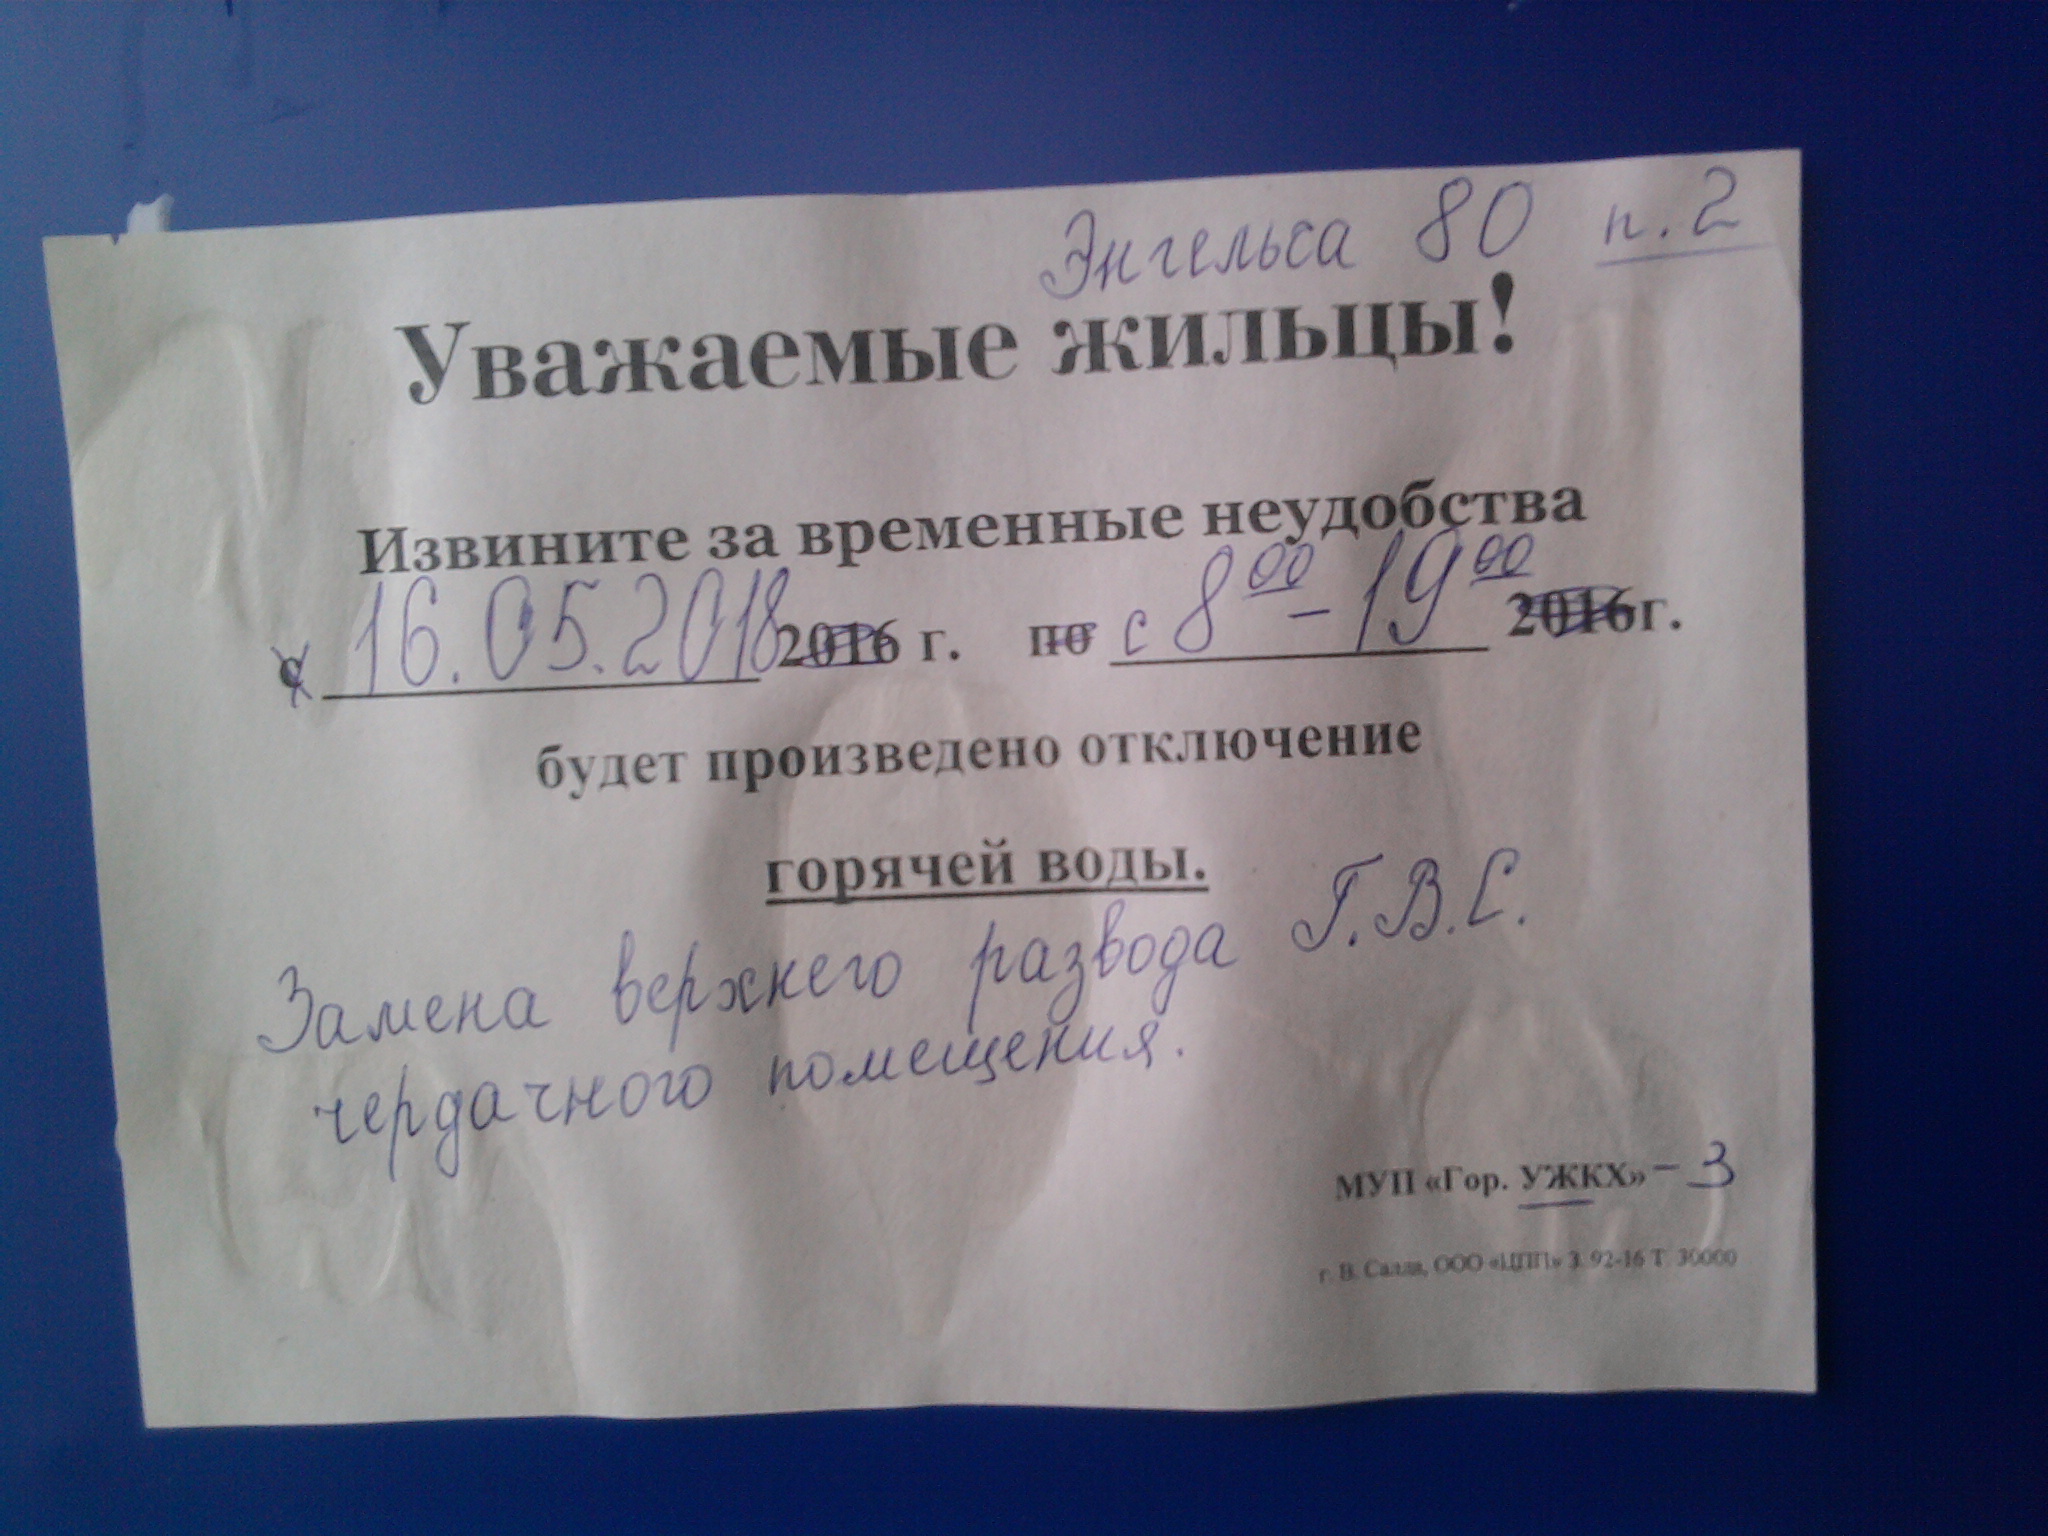 Энгельса 80 п. 2
Уважаемые жильцы!
Извините за временные неудобства
с 16.05.2018 2016 г. по с 8 00 - 19 00 2016 г.
будет произведено отключение
горячей воды.
Замена верхнего развода Г.В.С.
чердачного помещения.
МУП «Гор. УЖКХ» - 3
г. В. Салда, ООО «ЦПП» З. 92-16 Т. 30000